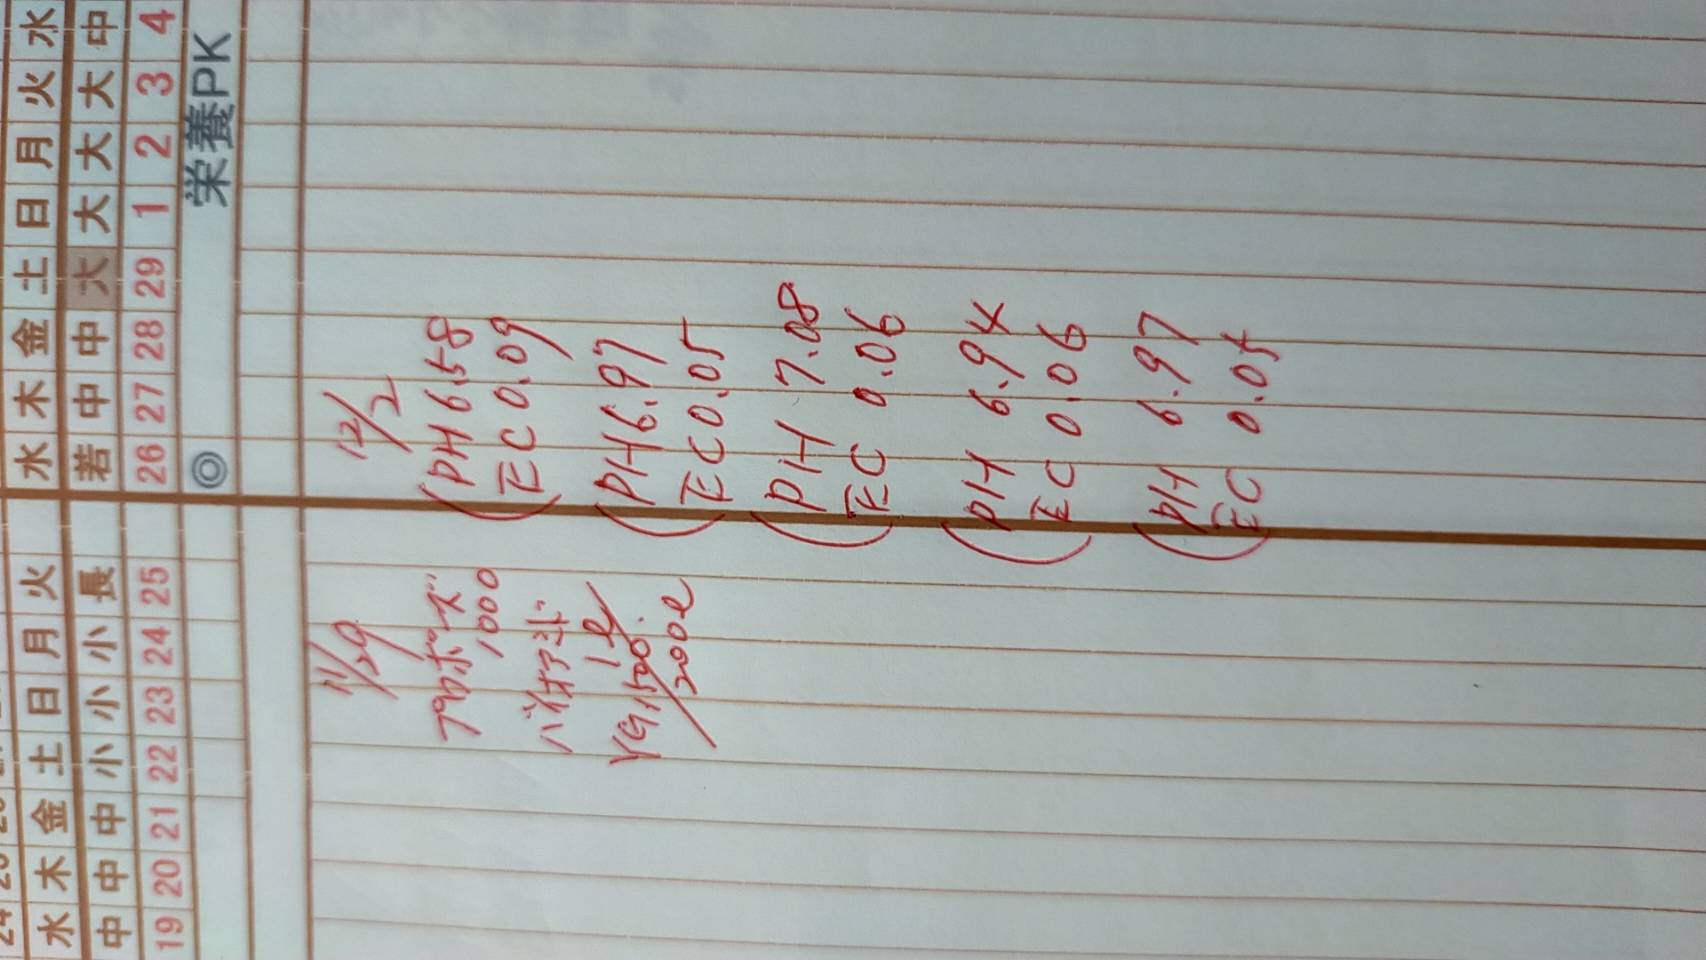 水 木 金 土 日 月 火 水 木 金 土 日 月 火 水
中 中 中 小 小 小 長 若 中 中 大 大 大 大 中
19 20 21 22 23 24 25 26 27 28 29 1 2 3 4
◎ 栄養PK
11/29
1000
1ℓ
200ℓ
12/2
PH 6.58
EC 0.09
PH 6.97
EC 0.05
PH 7.08
EC 0.06
PH 6.94
EC 0.06
PH 6.97
EC 0.05